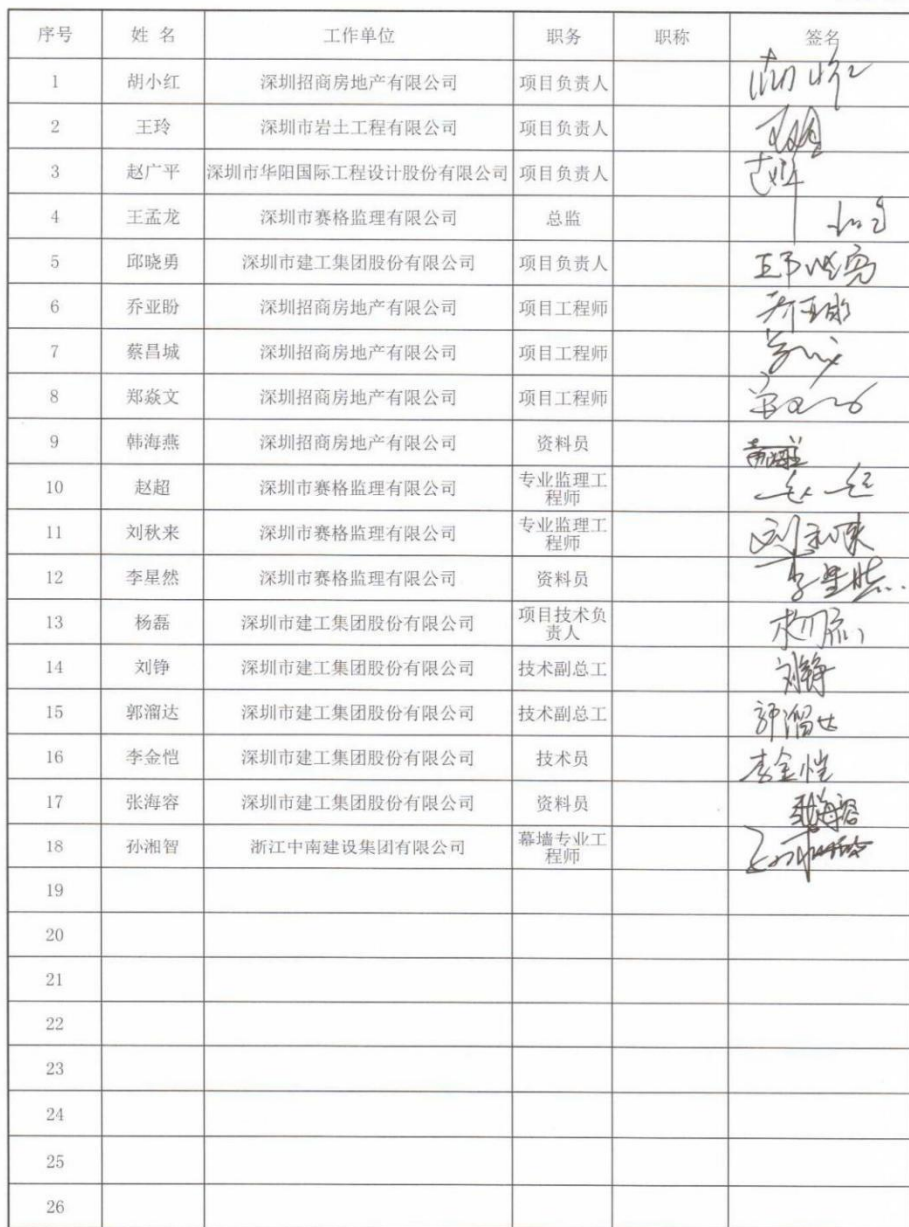 序号 姓 名 工作单位 职务 职称 签名
1 胡小红 深圳招商房地产有限公司 项目负责人
2 王玲 深圳市岩土工程有限公司 项目负责人
3 赵广平 深圳市华阳国际工程设计股份有限公司 项目负责人
4 王孟龙 深圳市赛格监理有限公司 总监
5 邱晓勇 深圳市建工集团股份有限公司 项目负责人
6 乔亚盼 深圳招商房地产有限公司 项目工程师
7 蔡昌城 深圳招商房地产有限公司 项目工程师
8 郑焱文 深圳招商房地产有限公司 项目工程师
9 韩海燕 深圳招商房地产有限公司 资料员
10 赵超 深圳市赛格监理有限公司 专业监理工
程师
11 刘秋来 深圳市赛格监理有限公司 专业监理工
程师
12 李星然 深圳市赛格监理有限公司 资料员 李星然
13 杨磊 深圳市建工集团股份有限公司 项目技术负
责人
14 刘铮 深圳市建工集团股份有限公司 技术副总工 刘铮
15 郭溜达 深圳市建工集团股份有限公司 技术副总工 郭溜达
16 李金恺 深圳市建工集团股份有限公司 技术员 李金恺
17 张海容 深圳市建工集团股份有限公司 资料员
18 孙湘智 浙江中南建设集团有限公司 幕墙专业工
程师
19
20
21
22
23
24
25
26